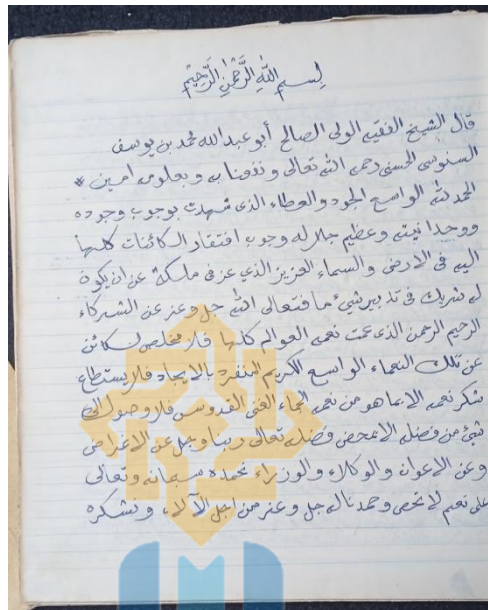 بسم الله الرحمن الرحيم
قال الشيخ الفقيه الولي الصالح أبو عبد الله محمد بن يوسف
السنوسي الحسني رحمه الله تعالى ونفعنا به وبعلومه امين *
الحمد لله الواسع الجود والعطاء الذي شهدت بوجوب وجوده
ووحدانيته وعظيم جلاله وجوب افتقار الكائنات كلها
اليه في الارض والسماء العزيز الذي عز في ملكه عن ان يكون
له شريك في تدبير شيء ما فتعالى الله جل وعز عن الشركاء
الرحيم الرحمن الذي عمت نعمه العوالم كلها فلا مخلص لكائن
عن تلك النعماء الواسع الكريم المنفرد بالايجاد فلا يستطاع
شكر نعمه الا بما هو من نعمه الجماء الغني القدوس فلا وصول الى
شيء من فضله الا بمحض فضله تعالى ربنا وجل عن الاغراض
وعن الاعوان والوكلاء والوزراء نحمده سبحانه وتعالى
على نعم لا تحصى وحمدنا له جل وعز من اجل الآلاء ونشكره